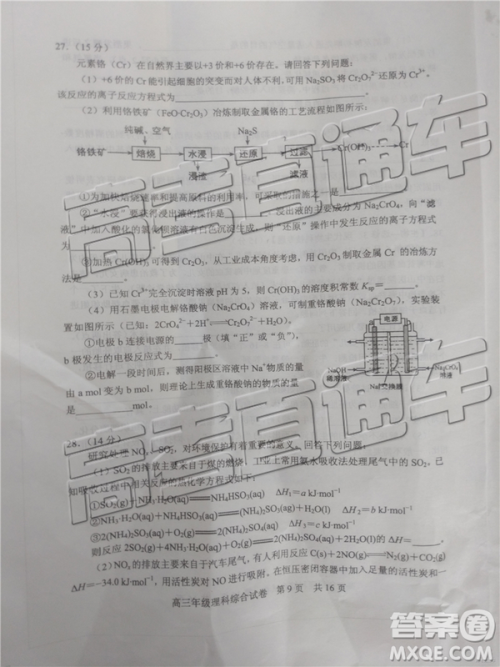 27.（15 分）
元素铬（Cr）在自然界主要以+3 价和+6 价存在。请回答下列问题：
（1）+6 价的 Cr 能引起细胞的突变而对人体不利，可用 Na₂SO₃ 将 Cr₂O₇²⁻ 还原为 Cr³⁺。
该反应的离子反应方程式为
（2）利用铬铁矿（FeO·Cr₂O₃）冶炼制取金属铬的工艺流程如图所示：
纯碱、空气 Na₂S
铬铁矿 焙烧 水浸 还原 过滤 Cr(OH)₃ Cr
浸渣 滤液
①为加快焙烧速率和提高原料的利用率，可采取的措施之一是
②“水浸”要获得浸出液的操作是 浸出液的主要成分为 Na₂CrO₄，向“滤
液”中加入酸化的氯化钡溶液有白色沉淀生成，则“还原”操作中发生反应的离子方程式
为
③加热 Cr(OH)₃ 可得到 Cr₂O₃，从工业成本角度考虑，用 Cr₂O₃ 制取金属 Cr 的冶炼方
法是
（3）已知 Cr³⁺ 完全沉淀时溶液 pH 为 5，则 Cr(OH)₃ 的溶度积常数 Ksp=
（4）用石墨电极电解铬酸钠（Na₂CrO₄）溶液，可制重铬酸钠（Na₂Cr₂O₇），实验装
置如图所示（已知：2CrO₄²⁻+2H⁺ Cr₂O₇²⁻+H₂O）。
①电极 b 连接电源的____极（填“正”或“负”），
b 极发生的电极反应式为
②电解一段时间后，测得阳极区溶液中 Na⁺物质的量
由 a mol 变为 b mol，则理论上生成重铬酸钠的物质的量
是
电源
NaOH
稀溶液
Na₂CrO₄
溶液
Na⁺交换膜
28.（14 分）
研究处理 NOₓ、SO₂，对环境保护有着重要的意义。回答下列问题：
（1）SO₂ 的排放主要来自于煤的燃烧，工业上常用氨水吸收法处理尾气中的 SO₂。已
知吸收过程中相关的热化学方程式如下：
①SO₂(g)+NH₃·H₂O(aq)═NH₄HSO₃(aq) ΔH₁=a kJ·mol⁻¹
②NH₃·H₂O(aq)+NH₄HSO₃(aq)═(NH₄)₂SO₃(aq)+H₂O(l) ΔH₂=b kJ·mol⁻¹
③2(NH₄)₂SO₃(aq)+O₂(g)═2(NH₄)₂SO₄(aq) ΔH₃=c kJ·mol⁻¹
则反应 2SO₂(g)+4NH₃·H₂O(aq)+O₂(g)═2(NH₄)₂SO₄(aq)+2H₂O(l)的 ΔH=
（2）NOₓ 的排放主要来自于汽车尾气，有人利用反应 C(s)+2NO(g) N₂(g)+CO₂(g)
ΔH=−34.0 kJ·mol⁻¹，用活性炭对 NO 进行吸附，在恒压密闭容器中加入足量的活性炭和一
高三年级理科综合试卷 第 9 页 共 16 页
高考直通车
高考直通车
答案圈
MXQE.COM